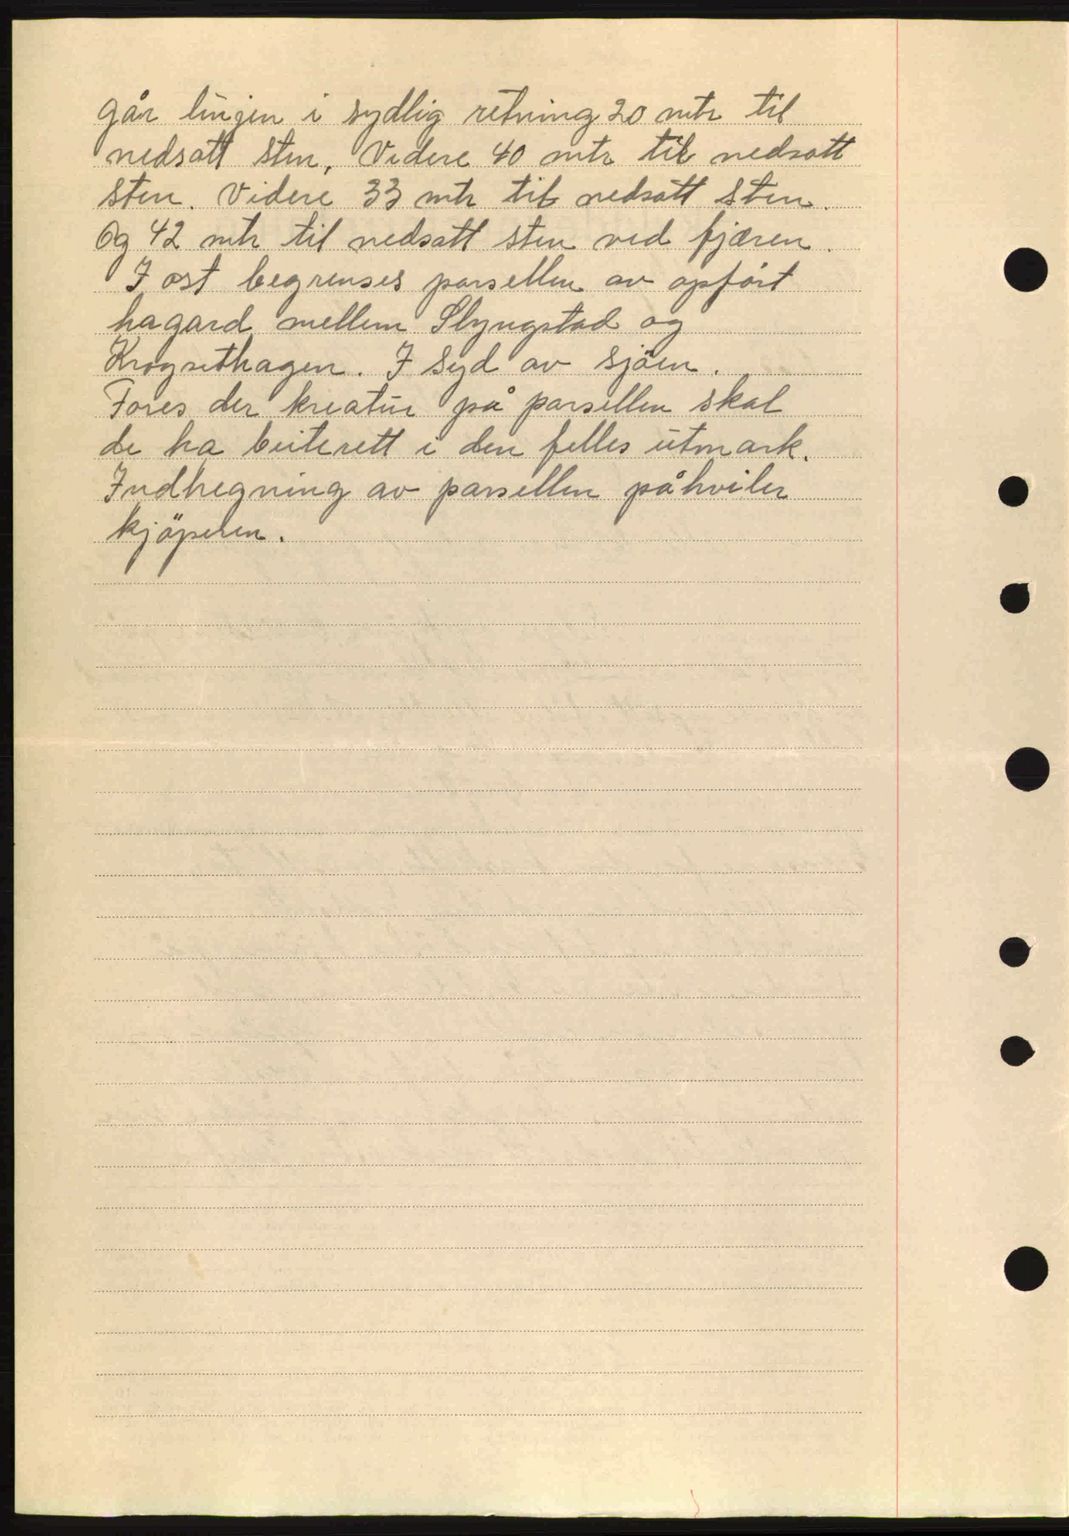 går linjen i sydlig retning 20 mtr til
nedsatt sten, Videre 40 mtr til nedsatt
sten. Videre 33 mtr til nedsatt sten.
Og 42 mtr til nedsatt sten ved fjæren.
I øst begrenses parsellen av opført
hagard mellem Slyngstad og
Krogsethagen. I syd av sjøen.
Føres der kreatur på parsellen skal
de ha beiterett i den felles utmark.
Indhegning av parsellen påhviler
kjøperen.